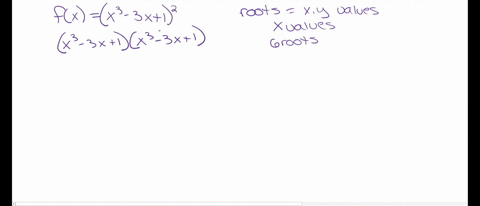 f(x) = (x³ - 3x + 1)²
(x³ - 3x + 1)(x³ - 3x + 1)
roots = x,y values
x values
6 roots